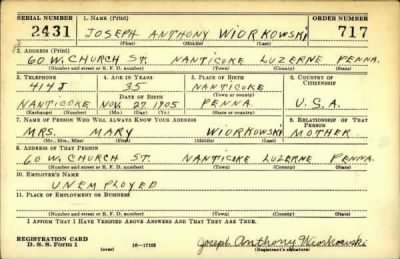 SERIAL NUMBER 1. NAME (Print) ORDER NUMBER
2431 JOSEPH ANTHONY WIORKOWSKI 717
(First) (Middle) (Last)
2. ADDRESS (Print)
60 W. CHURCH ST. NANTICOKE LUZERNE PENNA.
(Number and street or R. F. D. number) (Town) (County) (State)
3. TELEPHONE 4. AGE IN YEARS 5. PLACE OF BIRTH 6. COUNTRY OF CITIZENSHIP
414J 35 NANTICOKE
DATE OF BIRTH (Town or county)
NANTICOKE NOV. 27, 1905 PENNA. U.S.A.
(Exchange) (Number) (Mo.) (Day) (Yr.) (State or country)
7. NAME OF PERSON WHO WILL ALWAYS KNOW YOUR ADDRESS 8. RELATIONSHIP OF THAT PERSON
MRS. MARY WIORKOWSKI MOTHER
(Mr., Mrs., Miss) (First) (Middle) (Last)
9. ADDRESS OF THAT PERSON
60 W. CHURCH ST. NANTICOKE LUZERNE PENNA.
(Number and street or R. F. D. number) (Town) (County) (State)
10. EMPLOYER'S NAME
UNEMPLOYED
11. PLACE OF EMPLOYMENT OR BUSINESS
(Number and street or R. F. D. number) (Town) (County) (State)
I AFFIRM THAT I HAVE VERIFIED ABOVE ANSWERS AND THAT THEY ARE TRUE.
REGISTRATION CARD
D. S. S. Form 1 (over) 16—17105 Joseph Anthony Wiorkowski
(Registrant's signature)